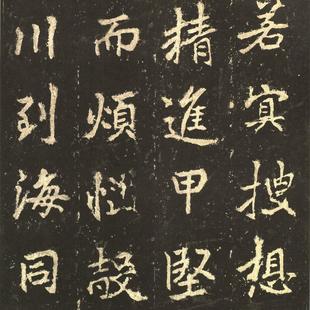 若冥搜想
精進甲堅
而煩惱
川到海同